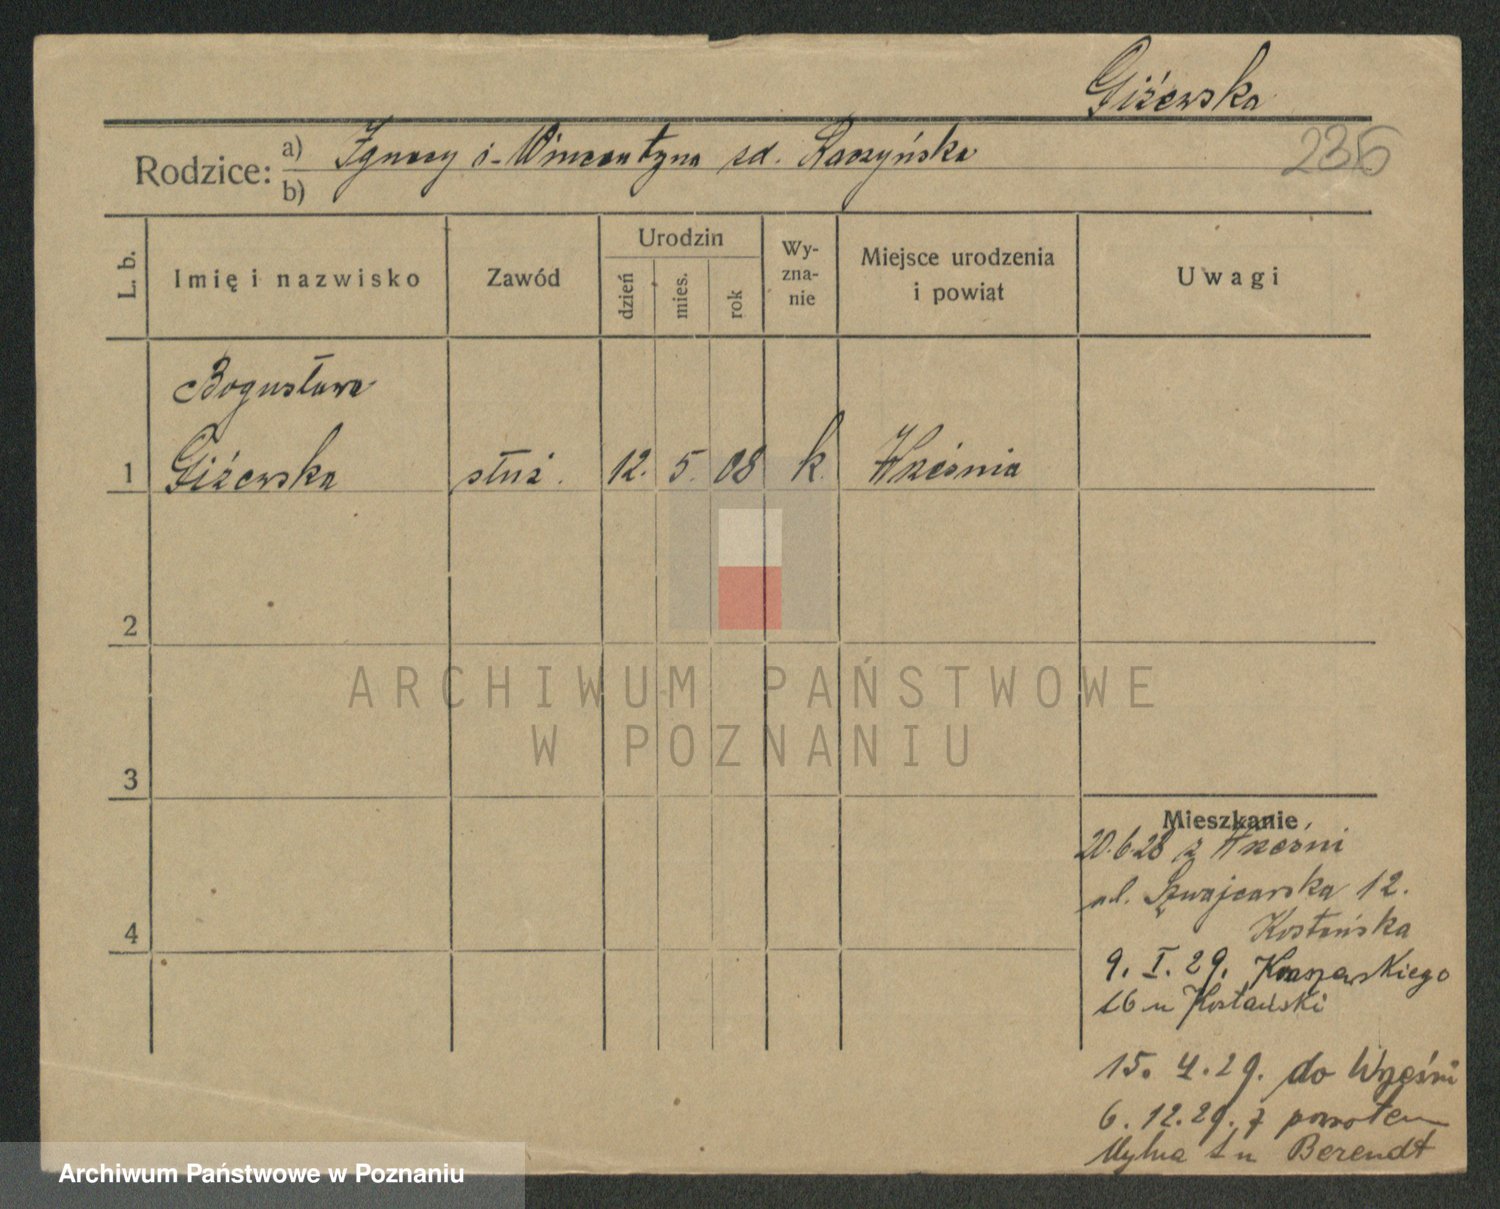 Giżewska
235
Rodzice: a) Ignacy i Wincentyna zd. Raszyńska
b)
L. b. Imię i nazwisko Zawód Urodzin dzień mies. rok Wyznanie Miejsce urodzenia i powiat Uwagi
Bogusława
1 Giżewska służ. 12. 5. 08 k. Września
2
3
4
Mieszkanie
20.6.28 z Wrześni
ul. Szwajcarska 12.
Kostańska
9. I. 29. Kraszewskiego
16 u Kostański
15. 4. 29. do Wrześni
6. 12. 29. z powrotem
Mylna u Berendt
ARCHIWUM PAŃSTWOWE
W POZNANIU
Archiwum Państwowe w Poznaniu